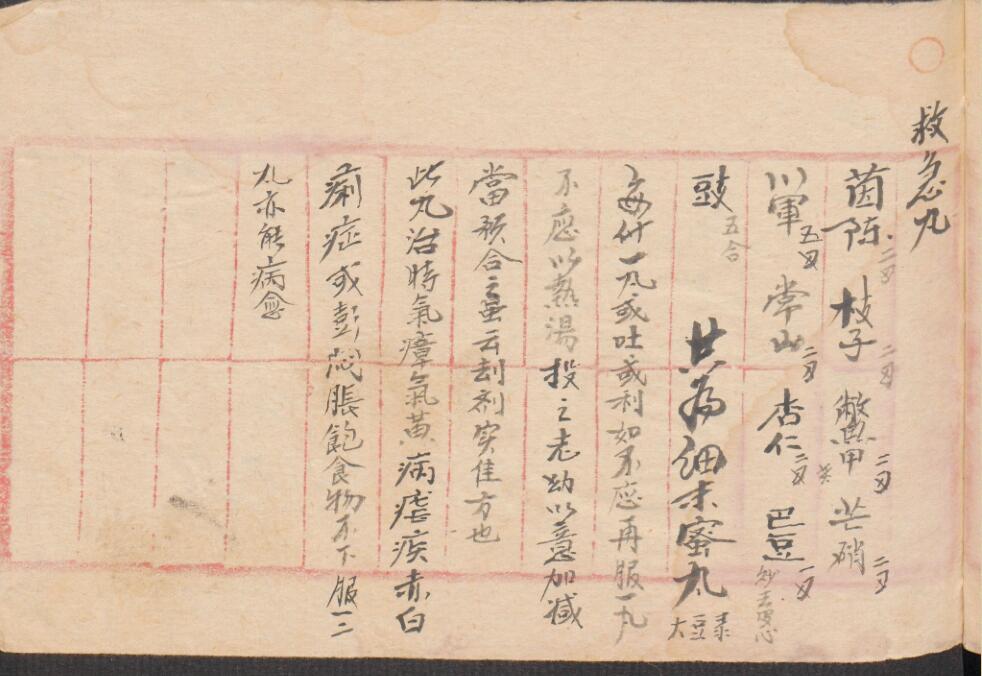 救急丸
茵陈二両 枝子二両 鱉甲二両炙 芒硝二両
川軍五両 常山二両 杏仁二両 巴豆一両炒去
豉五合 共為細末蜜丸大豆
每付一丸或吐或利如不應再服一丸
不應以熱湯投之老幼以意加减
當預合之 云刼劑实佳方也
此丸治時氣瘴氣黄病瘧疾赤白
痢症或彭闷脹飽食物不下服一二
丸亦能病愈